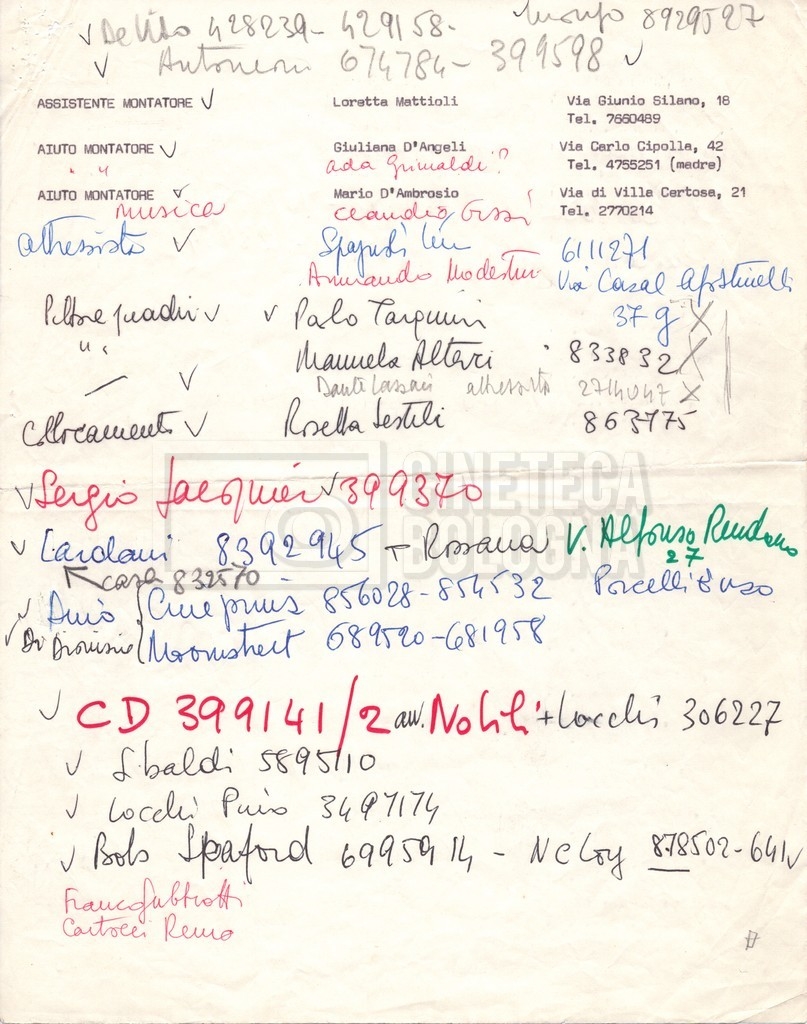 ✓ De Vito 428239 - 429158 - 8929527
✓ Antonioni 674784 - 399598 ✓
ASSISTENTE MONTATORE ✓ Loretta Mattioli Via Giunio Silano, 18
Tel. 7660489
AIUTO MONTATORE ✓ Giuliana D'Angeli Via Carlo Cipolla, 42
" " Ada Grimaldi? Tel. 4755251 (madre)
AIUTO MONTATORE ✓ Mario D'Ambrosio Via di Villa Certosa, 21
musica Claudio Tel. 2770214
attrezzista ✓ 6111271
Armando Via Casal Agostinelli
Pittore quadri ✓ ✓ Paolo Tarquini 37 g X
" " Manuela Alteri 833832 X
— ✓ Dante attrezzista 2714047 X
Collocamento ✓ Rosella Sestili 863775
✓ Sergio Jacquier ✓ 399370
CINETECA
BOLOGNA
✓ Cardani 8392945 + Rossana V. Alfonso Rendano
27
casa 832570 Porcelli Enzo
✓ Cineprius 856028-854532
✓ Di Dionisio Moonstreet 689520-681958
✓ CD 399141/2 avv. Nobili + Locchi 306227
✓ Sbaldi 5895110
✓ Locchi Pino 3497174
✓ Bob Spafford 6995914 - 878502-641 ✓
Franco
Cartocci Remo